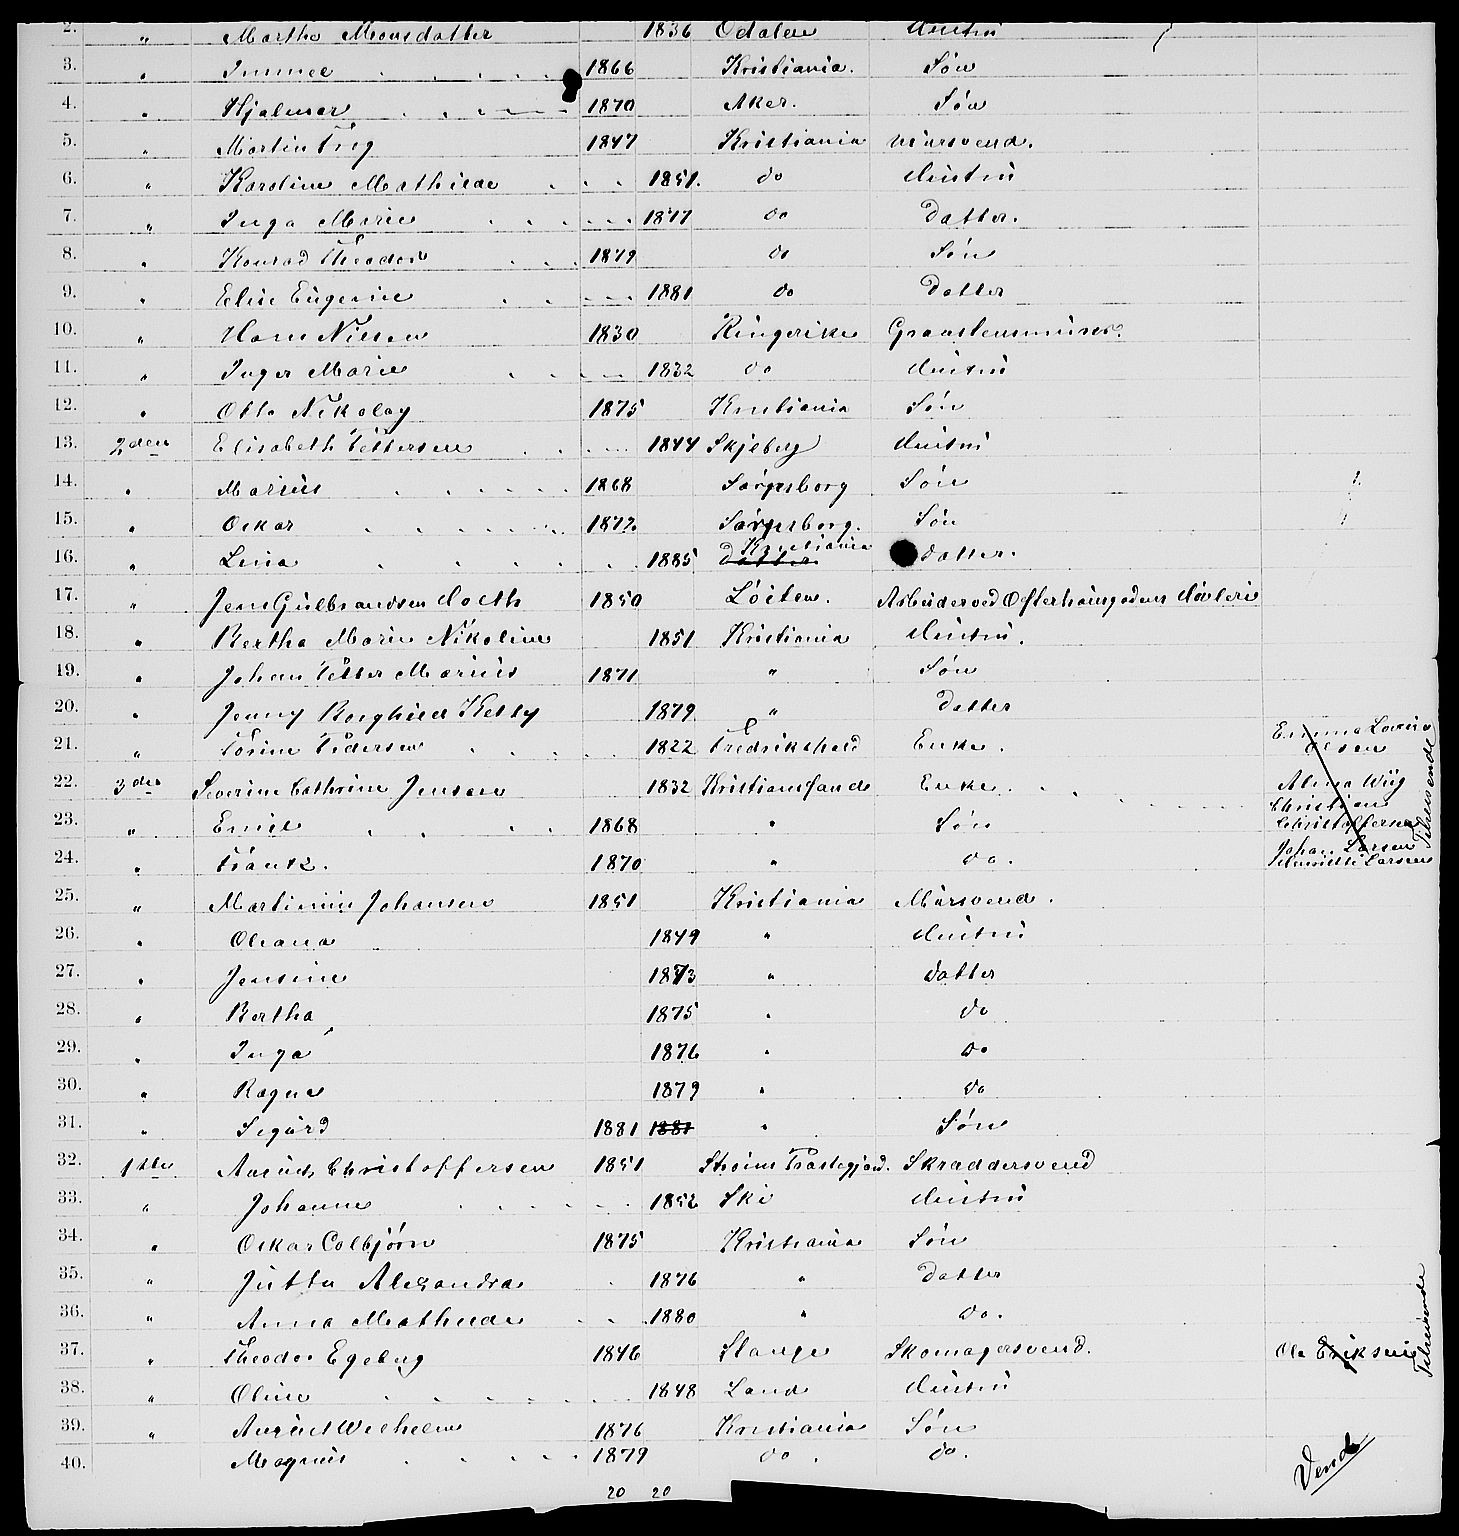 2. " Martha Monsdatter 1836 Odalen Hustru
3. " Immel 1866 Kristiania. Søn
4. " Hjalmar 1870 Aker. Søn
5. " Martin Frig 1847 Kristiania Mursvend.
6. " Karoline Mathilde 1851. do Hustru
7. " Inga Marie 1877 do Datter.
8. " Konrad Theodor 1879 do Søn
9. " Elise Eugenie 1881 do Datter
10. " Hans Nilsen 1830 Ringerike Graastensmurer.
11. " Inger Marie 1832 do Hustru
12. " Otto Nikolay 1875 Kristiania Søn
13. 2den Elisabeth Pettersen 1844 Skjeberg Hustru
14. " Marius 1868 Sarpsborg Søn
15. " Oskar 1872. Sarpsborg. Søn
16. " Lina 1885 Datter Kristiania Datter.
17. " Jens Gulbrandsen Holth 1850 Löiten. Arbeider ved Christiania
18. " Bertha Marie Nikoline 1851 Kristiania Hustru.
19. " Johan Petter Marius 1871 " Søn
20. " Jenny Borghild Ketty 1879 " Datter
21. " Torine Pedersen 1822 Fredrikshald Enke.
Emma Lovise
Olsen
22. 3die Severine Cathrine Jensen 1832 Kristianssand Enke. Alma Wiig
Christian
23. " Emil 1868 " Søn Christoffersen
24. " Frantz. 1870 " do. Johan Larsen
Larsen
Tilreisende
25. " Martinius Johansen 1851 Kristiania Mursvend.
26. " Oleana 1849 " Hustru
27. " Jensine 1873 " Datter
28. " Bertha 1875 " do
29. " Inga 1876 " do
30. " Ragna 1879 " do
31. " Sigurd 1881 1881 " Søn
32. 1ste August Christoffersen 1851 Strøms Præstegjæld. Skræddersvend
33. " Johanne 1852 Ski Hustru
34. " Oskar Colbjørn 1875 Kristiania Søn
35. " Jutta Alexandra 1876 " Datter
36. " Anna Mathilde 1880 " do.
37. " Theodor Egeberg 1846 Stange Skomagersvend. Ole Eriksen
Tilreisende
38. " Oline 1848 Land Hustru
39. " August Wilhelm 1876 Kristiania Søn
40. Magnus 1879 do. do.
Vend
20 20